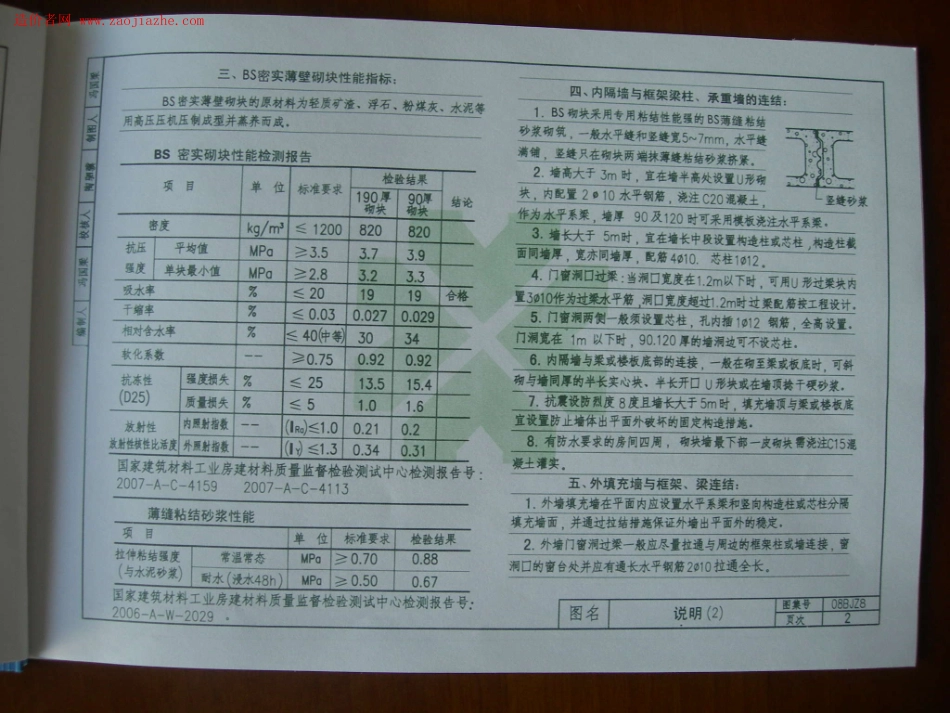 造价者网 www.zaojiazhe.com
三、BS密实薄壁砌块性能指标：
BS密实薄壁砌块的原材料为轻质矿渣、浮石、粉煤灰、水泥等
用高压压机压制成型并蒸养而成。
BS 密实砌块性能检测报告
项 目 单 位 标准要求 检验结果 结论
190厚砌块 90厚砌块
密度 kg/m³ ≤ 1200 820 820
抗压强度 平均值 MPa ≥3.5 3.7 3.9
单块最小值 MPa ≥2.8 3.2 3.3
吸水率 % ≤ 20 19 19 合格
干缩率 % ≤ 0.03 0.027 0.029
相对含水率 % ≤ 40(中等) 30 34
软化系数 -- ≥0.75 0.92 0.92
抗冻性(D25) 强度损失 % ≤ 25 13.5 15.4
质量损失 % ≤ 5 1.0 1.6
放射性 内照射指数 -- (IRa)≤1.0 0.21 0.2
放射性核性比活度 外照射指数 -- (Iγ)≤1.3 0.34 0.31
国家建筑材料工业房建材料质量监督检验测试中心检测报告号：
2007-A-C-4159 2007-A-C-4113
薄缝粘结砂浆性能
项 目 单 位 标准要求 检验结果
拉伸粘结强度(与水泥砂浆) 常温常态 MPa ≥ 0.70 0.88
耐水(浸水48h) MPa ≥ 0.50 0.67
国家建筑材料工业房建材料质量监督检验测试中心检测报告号：
2006-A-W-2029 。
四、内隔墙与框架梁柱、承重墙的连结：
1. BS砌块采用专用粘结性能强的BS薄缝粘结
砂浆砌筑，一般水平缝和竖缝宽5~7mm，水平缝
满铺，竖缝只在砌块两端抹薄缝粘结砂浆挤紧。
2. 墙高大于 3m 时，宜在墙半高处设置U形砌
块，内配置 2ø10 水平钢筋，浇注 C20混凝土，
作为水平系梁，墙厚 90及120时可采用模板浇注水平系梁。
竖缝砂浆
3. 墙长大于 5m时，宜在墙长中段设置构造柱或芯柱，构造柱截
面同墙厚，宽亦同墙厚，配筋 4ø10. 芯柱1ø12。
4. 门窗洞口过梁：当洞口宽度在1.2m以下时，可用U形过梁块内
置3ø10作为过梁水平筋，洞口宽度超过1.2m时过梁配筋按工程设计。
5. 门窗洞两侧一般须设置芯柱，孔内插 1ø12 钢筋，全高设置。
门洞宽在 1m 以下时，90.120厚的墙洞边可不设芯柱。
6. 内隔墙与梁或楼板底部的连接，一般在砌至梁或板底时，可斜
砌与墙同厚的半长实心块、半长开口 U形块或在墙顶捻干硬砂浆。
7. 抗震设防烈度 8度且墙长大于5m时，填充墙顶与梁或楼板底
宜设置防止墙体出平面外破坏的固定构造措施。
8. 有防水要求的房间四周，砌块墙最下部一皮砌块需浇注C15混
凝土灌实。
五、外填充墙与框架、梁连结：
1. 外墙填充墙在平面内应设置水平系梁和竖向构造柱或芯柱分隔
填充墙面，并通过拉结措施保证外墙出平面外的稳定。
2. 外墙门窗洞过梁一般应尽量拉通与周边的框架柱或墙连接，窗
洞口的窗台处并应有通长水平钢筋2ø10拉通全长。
图名 说明(2) 图集号 08BJZ8
页次 2
制图人
校核人
编制人